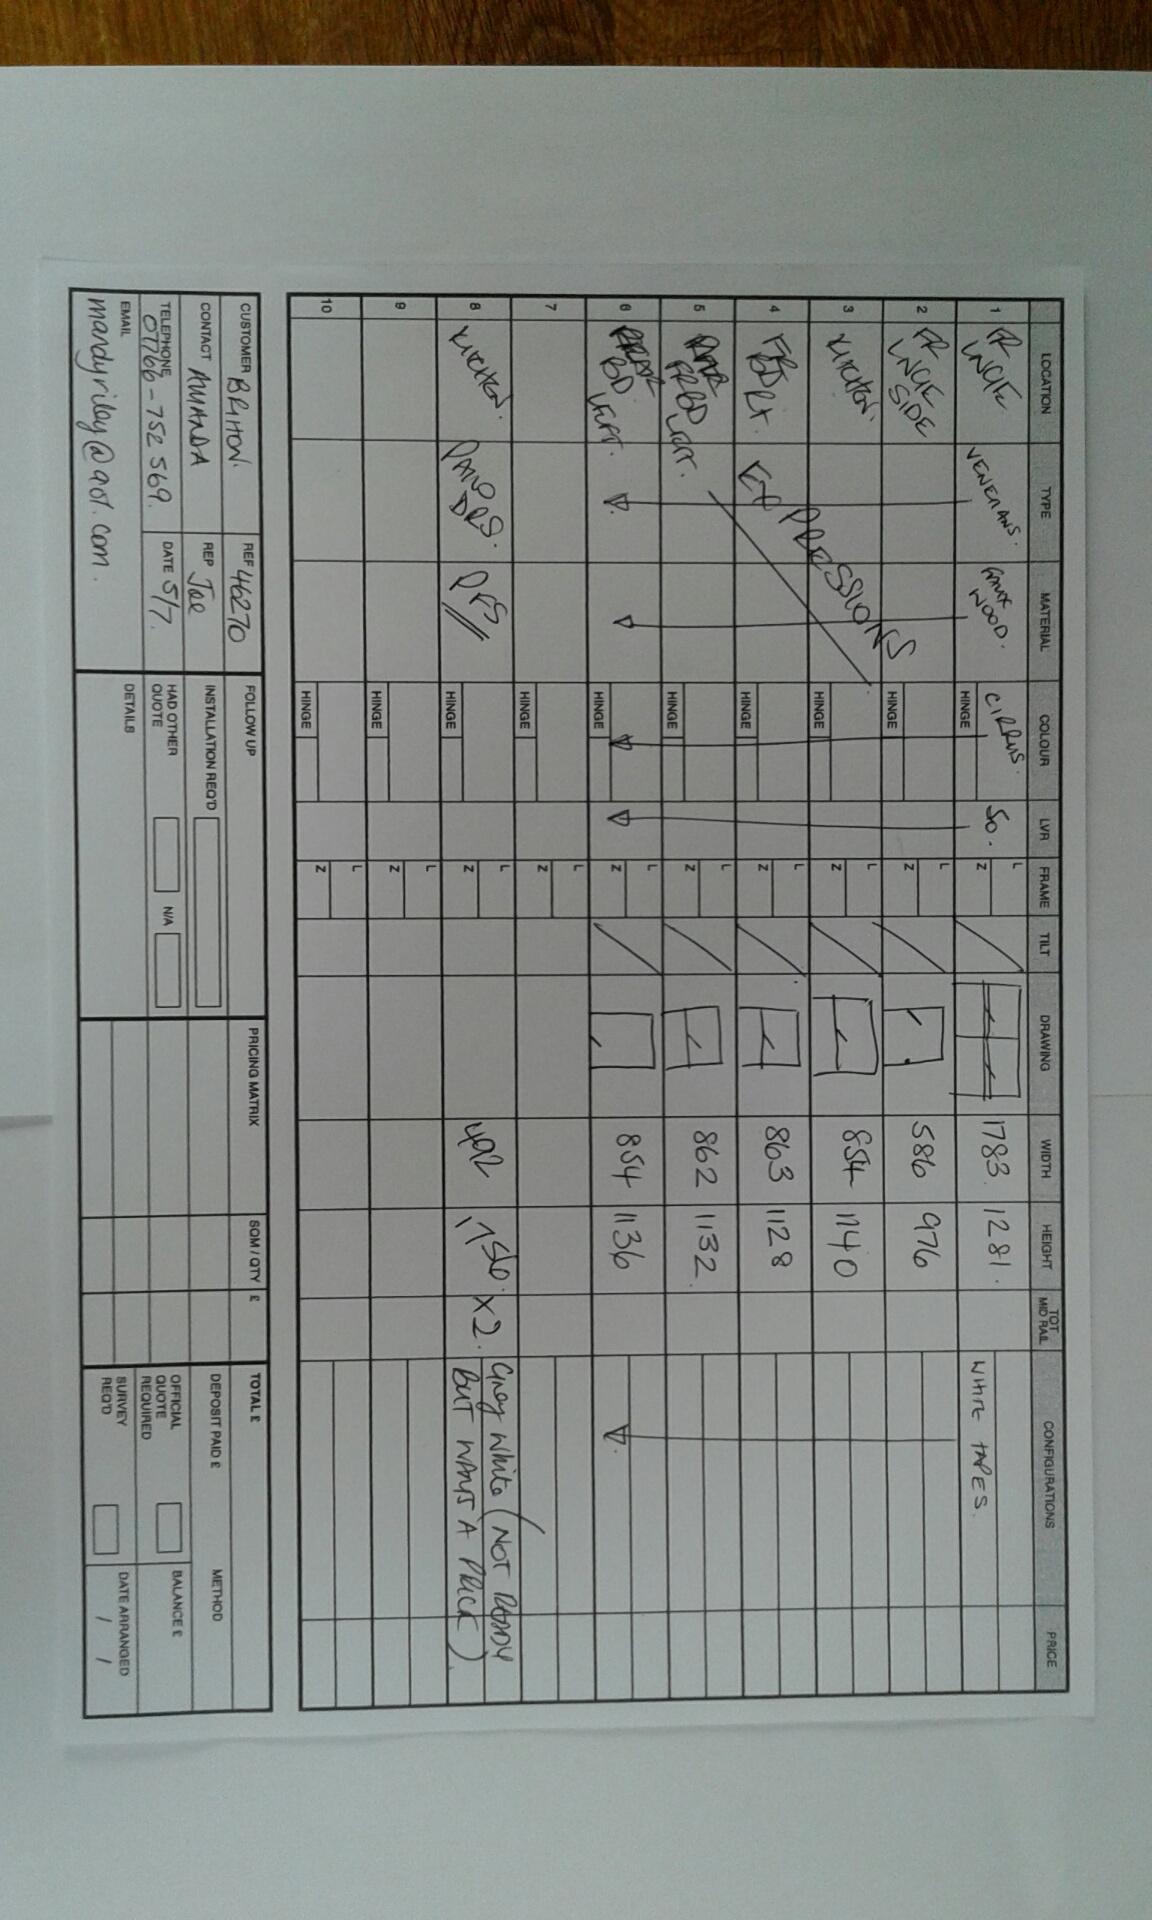 LOCATION TYPE MATERIAL COLOUR LVR FRAME TILT DRAWING WIDTH HEIGHT TOT MID RAIL CONFIGURATIONS PRICE
1 FR LNGE VENETIANS. FAUX WOOD. CIRRUS. HINGE 50. L Z 1783 1281. WHITE TAPES.
2 FR LNGE SIDE HINGE L Z 586 976
3 KITCHEN. HINGE L Z 854 1140
4 FR BD RT. HINGE L Z 863 1128
EXPRESSIONS
5 FR BD LEFT. HINGE L Z 862 1132.
6 REAR BD LEFT. HINGE L Z 854 1136
7 HINGE L Z
8 KITCHEN. PATIO DRS. HINGE L Z 492 1750. X2. Grey White (NOT READY
BUT WANTS A PRICE).
9 HINGE L Z
10 HINGE L Z
CUSTOMER BRITTON. REF 46270 FOLLOW UP PRICING MATRIX SQM / QTY £ TOTAL £
CONTACT AMANDA REP Joe INSTALLATION REQ'D DEPOSIT PAID £ METHOD
TELEPHONE 07766-752 569. DATE 5/7. HAD OTHER QUOTE N/A OFFICIAL QUOTE REQUIRED BALANCE £
EMAIL DETAILS SURVEY REQ'D DATE ARRANGED / /
mandyriley@aol.com.